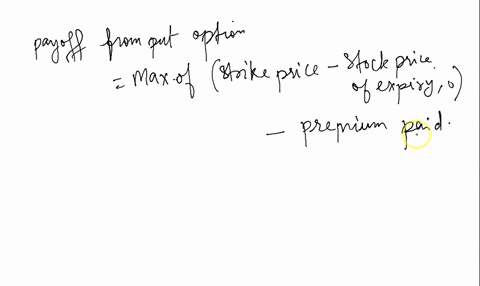 payoff from put option
= Max.of (Strike price - Stock price
of expiry, 0)
- premium paid.